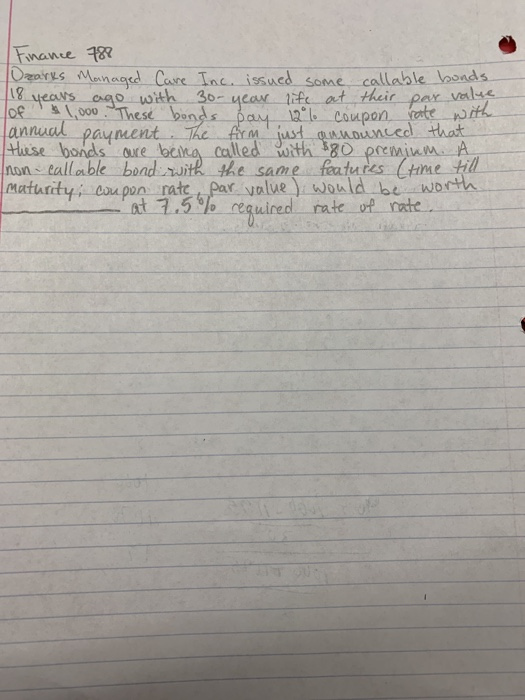 Finance 788
Ozarks Managed Care Inc. issued some callable bonds
18 years ago with 30-year life at their par value
of $1,000. These bonds pay 12% coupon rate with
annual payment. The firm just announced that
these bonds are being called with $80 premium. A
non-callable bond with the same features (time till
maturity; coupon rate, par value) would be worth
____________ at 7.5% required rate of rate.